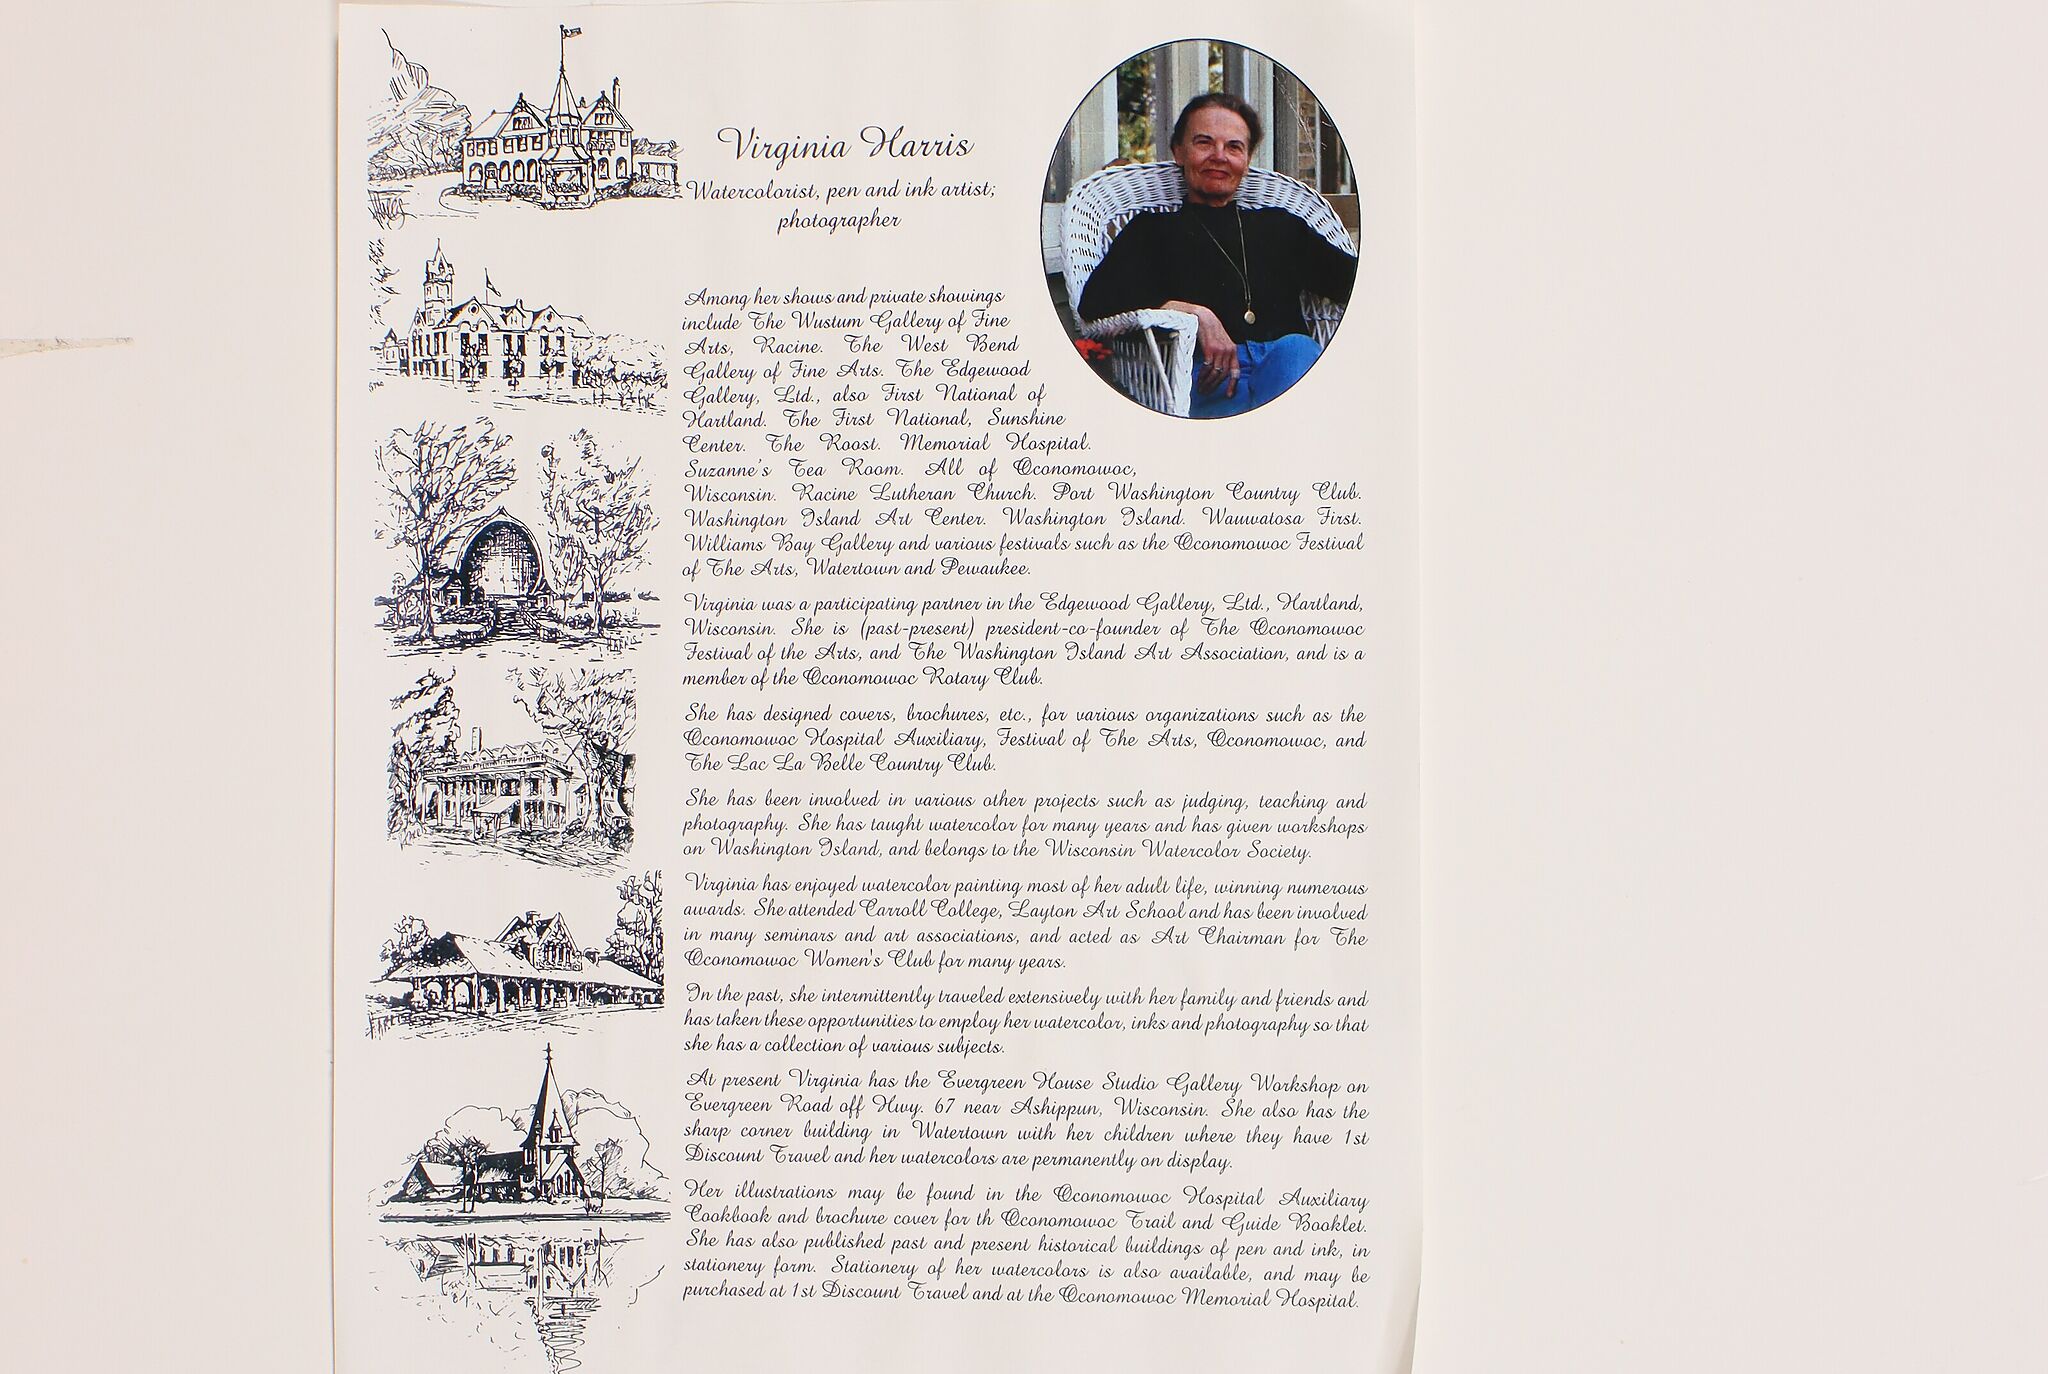 Virginia Harris
Watercolorist, pen and ink artist;
photographer
Among her shows and private showings
include The Wustum Gallery of Fine
Arts, Racine. The West Bend
Gallery of Fine Arts. The Edgewood
Gallery, Ltd., also First National of
Hartland. The First National, Sunshine
Center. The Roost. Memorial Hospital.
Suzanne's Tea Room. All of Oconomowoc,
Wisconsin. Racine Lutheran Church. Port Washington Country Club.
Washington Island Art Center. Washington Island. Wauwatosa First.
Williams Bay Gallery and various festivals such as the Oconomowoc Festival
of The Arts, Watertown and Pewaukee.
Virginia was a participating partner in the Edgewood Gallery, Ltd., Hartland,
Wisconsin. She is (past-present) president-co-founder of The Oconomowoc
Festival of the Arts, and The Washington Island Art Association, and is a
member of the Oconomowoc Rotary Club.
She has designed covers, brochures, etc., for various organizations such as the
Oconomowoc Hospital Auxiliary, Festival of The Arts, Oconomowoc, and
The Lac La Belle Country Club.
She has been involved in various other projects such as judging, teaching and
photography. She has taught watercolor for many years and has given workshops
on Washington Island, and belongs to the Wisconsin Watercolor Society.
Virginia has enjoyed watercolor painting most of her adult life, winning numerous
awards. She attended Carroll College, Layton Art School and has been involved
in many seminars and art associations, and acted as Art Chairman for The
Oconomowoc Women's Club for many years.
In the past, she intermittently traveled extensively with her family and friends and
has taken these opportunities to employ her watercolor, inks and photography so that
she has a collection of various subjects.
At present Virginia has the Evergreen House Studio Gallery Workshop on
Evergreen Road off Hwy. 67 near Ashippun, Wisconsin. She also has the
sharp corner building in Watertown with her children where they have 1st
Discount Travel and her watercolors are permanently on display.
Her illustrations may be found in the Oconomowoc Hospital Auxiliary
Cookbook and brochure cover for th Oconomowoc Trail and Guide Booklet.
She has also published past and present historical buildings of pen and ink, in
stationery form. Stationery of her watercolors is also available, and may be
purchased at 1st Discount Travel and at the Oconomowoc Memorial Hospital.